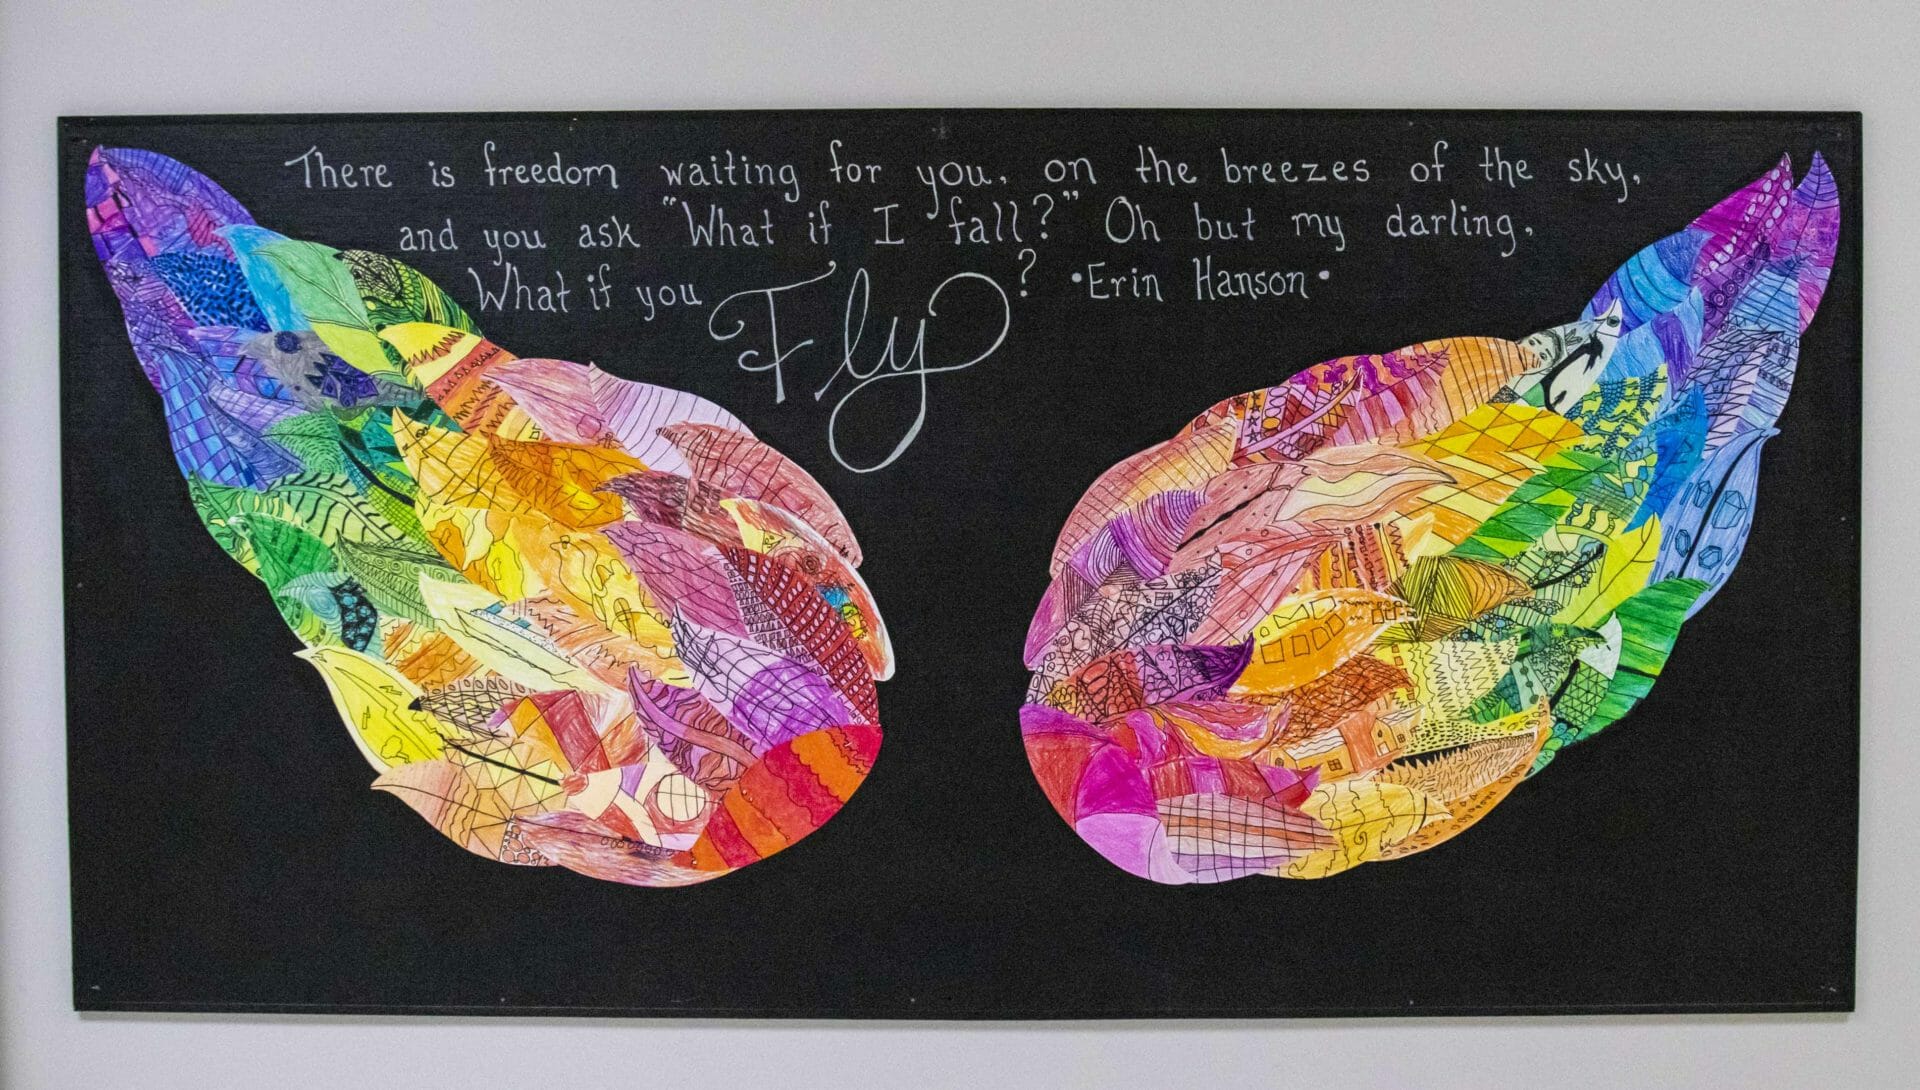 There is freedom waiting for you, on the breezes of the sky,
and you ask "What if I fall?" Oh but my darling,
What if you Fly? •Erin Hanson•